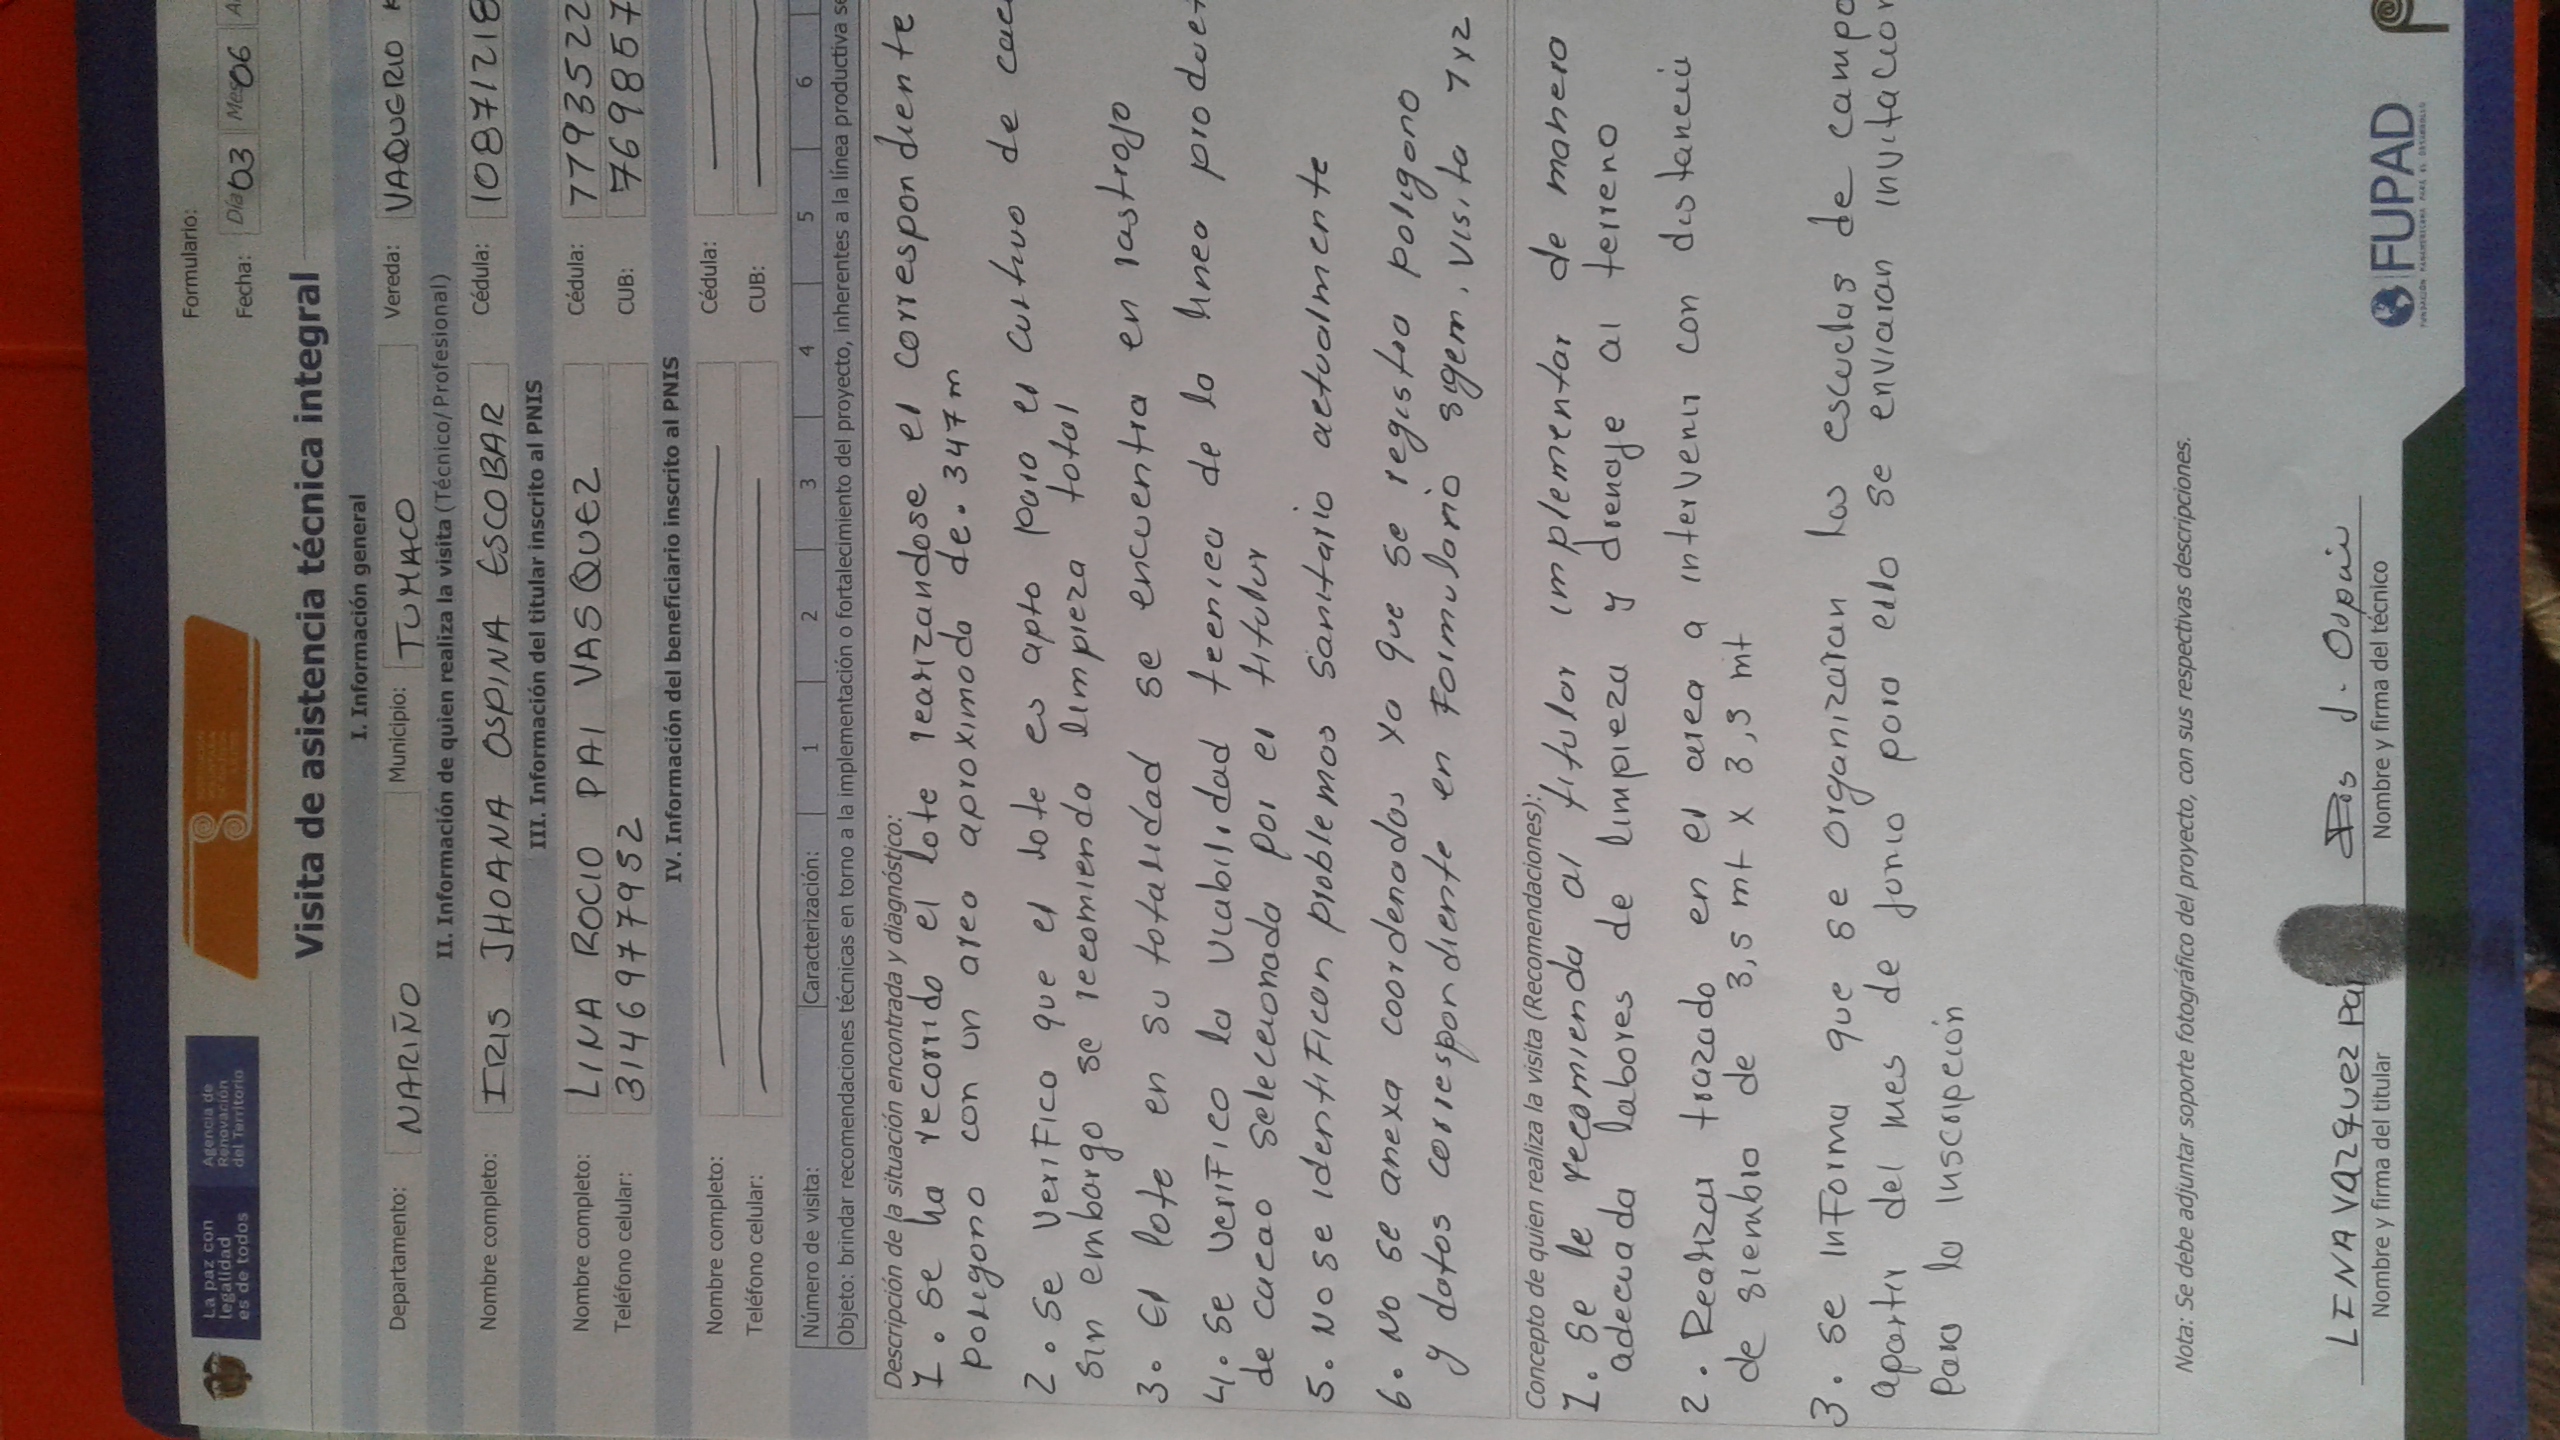 La paz con
legalidad
es de todos
Agencia de
Renovación
del Territorio
Formulario:
Fecha: Día 03 Mes 06
Visita de asistencia técnica integral
I. Información general
Departamento: NARIÑO Municipio: TUMACO Vereda: VAQUERIO
II. Información de quien realiza la visita (Técnico/ Profesional)
Nombre completo: IRIS JHOANA OSPINA ESCOBAR Cédula: 10871218
III. Información del titular inscrito al PNIS
Nombre completo: LINA ROCIO PAI VASQUEZ Cédula: 7793522
Teléfono celular: 3146977952 CUB: 7698857
IV. Información del beneficiario inscrito al PNIS
Nombre completo: Cédula:
Teléfono celular: CUB:
Número de visita: Caracterización: 1 2 3 4 5 6
Objeto: brindar recomendaciones técnicas en torno a la implementación o fortalecimiento del proyecto, inherentes a la línea productiva
Descripción de la situación encontrada y diagnóstico:
1. se ha recorrido el lote rearizandose el correspondiente
poligono con un area aproximada de. 347 m
2. se veriFica que el lote es apto para el cultivo de
sin embargo se recomienda limpieza total
3. El lote en su totalidad se encuentra en rastrojo
4. se veriFico la viabilidad tecnica de la linea
de cacao seleccionada por el titular
5. No se identiFican problemas sanitario actualmente
6. No se anexa coordenadas ya que se registra poligono
y datos correspondiente en Formulario sigem. visita 1 y 2
Concepto de quien realiza la visita (Recomendaciones):
1. se le recomienda al titular implementar de manera
adecuada labores de limpieza y drenaje al terreno
2. Realizar trazado en el area a intervenir con distancia
de siembra de 3,5 mt x 3,5 mt
3. se inForma que se organizaran las escuelas de campo
apartir del mes de junio para ello se enviaran invitacion
para la inscripción
Nota: Se debe adjuntar soporte fotográfico del proyecto, con sus respectivas descripciones.
LINA VAZQUEZ Pai
Nombre y firma del titular
J. Ospina
Nombre y firma del técnico
FUPAD
FUNDACIÓN PANAMERICANA PARA EL DESARROLLO